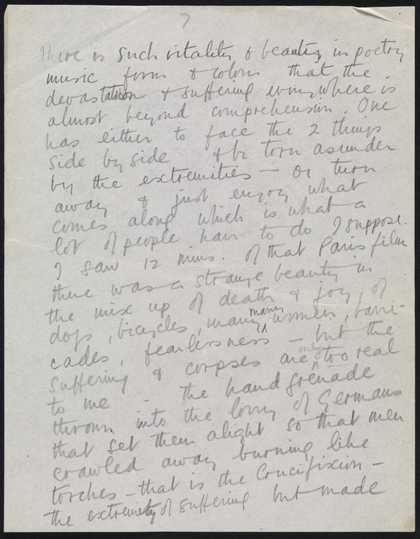 7
there is such vitality & beauty in poetry
music form & colour that the
devastation & suffering everywhere is
almost beyond comprehension. One
has either to face the 2 things
side by side & be torn asunder
by the extremities – or turn
away & just enjoy what
comes along which is what a
lot of people have to do I suppose.
I saw 12 mins. of that Paris film
there was a strange beauty in
the mix up of death & joy of
dogs, bicycles, many many women, barri-
cades, fearlessness – but the
suffering & corpses are too real
to me – the hand grenade
thrown into the lorry of Germans
that set them alight so that men
crawled away burning like
torches – that is the Crucifixion –
the extremity of suffering but made